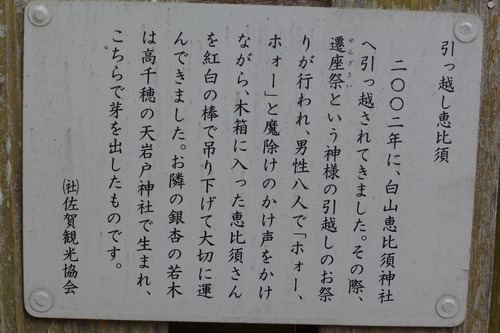 引っ越し恵比須
二〇〇二年に、白山恵比須神社
へ引っ越されてきました。その際、
遷座祭という神様の引越しのお祭
せんざさい
りが行われ、男性八人で「ホォー、
ホォー」と魔除けのかけ声をかけ
ながら、木箱に入った恵比須さん
を紅白の棒で吊り下げて大切に運
んできました。お隣の銀杏の若木
は高千穂の天岩戸神社で生まれ、
こちらで芽を出したものです。
㈳佐賀観光協会